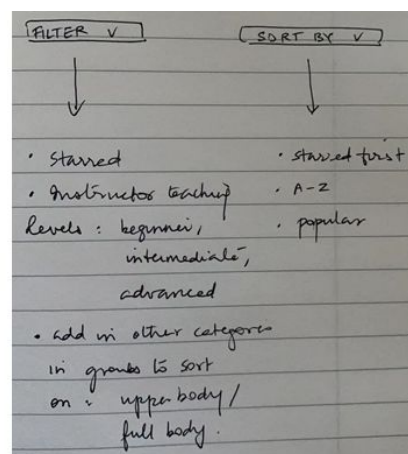 FILTER V
SORT BY V
• Starred
• Instructor teaching
levels : beginner,
intermediate,
advanced
• add in other categories
in groups to sort
on : upper body /
full body.
• starred first
• A-Z
• popular